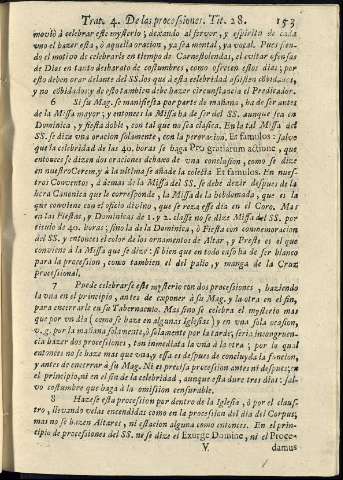 Trat. 4. De las processiones. Tit. 28. 153
moviò à celebrar este mysterio; dexando al fervor, y espiritu de cada
uno el hazer esta, ò aquella oracion, ya sea mental, ya vocal. Pues sien-
do el motivo de celebrarlo en tiempo de Carnestolendas, el evitar ofensas
de Dios en tanto desbarato de costumbres, como ofrecen estos dias; por
esto deben orar delante del SS. los que à esta celebridad assisten cõbidados,
y no cõbidados: y de esto tambien debe hazer circunstancia el Predicador.
6 Si su Mag. se manifiesta por parte de mañana, ha de ser antes
de la Missa mayor; y entonces la Missa ha de ser del SS. aunque sea en
Dominica, y fiesta doble, con tal que no sea clasica. En la tal Missa del
SS. se dize una oracion solamente, con la peroracion. Et famulos: salvo
que la celebridad de las 40. horas se haga Pro gratiarum actione, y que
entonces se dizen dos oraciones debaxo de una conclusion, como se dize
en nuestro Cerem. y à la ultima se añade la coleta Et famulos. En nues-
tros Conventos, à demas de la Missa del SS. se debe dezir despues de la
hora Canonica que le corresponde, la Missa de la hebdomada, que es la
que conviene con el oficio divino, que se reza esse dia en el Coro. Mas
en las Fiestas, y Dominicas de 1. y 2. classe no se dize Missa del SS. por
titulo de 40. horas: sino la de la Dominica, ò Fiesta con commemoracion
del SS. y entonces el color de los ornamentos de Altar, y Preste es el que
conviene à la Missa que se dize: si bien que en todo caso ha de ser blanco
para la procession, como tambien el del palio, y manga de la Cruz
processional.
7 Puede celebrarse este mysterio con dos processiones, haziendo
la una en el principio, antes de exponer à su Mag. y la otra en el fin,
para encerrarle en su Tabernaculo. Mas sino se celebra el mysterio mas
que por un dia (como se haze en algunas Iglesias) y en una sola oracion,
v. g. por la mañana solamente, ò solamente por la tarde; seria incongruen-
cia hazer dos processiones, tan inmediata la una à la otra; por lo qual
entonces no se haze mas que una, y essa es despues de concluyda la funcion,
y antes de encerrar à su Mag. Ni es precissa procession antes ni despues; en
el principio, ni en el fin de la celebridad, aunque esta dure tres dias: sal-
vo costumbre que haga à la omission censurable.
8 Hazese esta procession por dentro de la Iglesia, ò por el claus-
tro, llevando velas encendidas como en la procession del dia del Corpus;
mas no se hazen Altares, ni estacion alguna como entonces. En el prin-
cipio de processiones del SS. ne se dize el Exurge Domine, ni el Proce-
V. damus